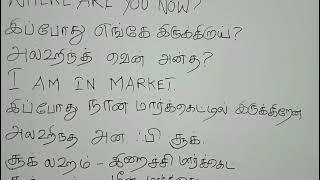 WHERE ARE YOU NOW?
இப்போது எங்கே இருக்கிறாய்?
அலஹிந்த் வென அன்த?
I AM IN MARKET.
இப்போது நான் மார்க்கெட்டில் இருக்கிறேன்
அலஹிந்த அன ஃபி சூக்.
சூக் லஹம் - இறைச்சி மார்க்கெட்